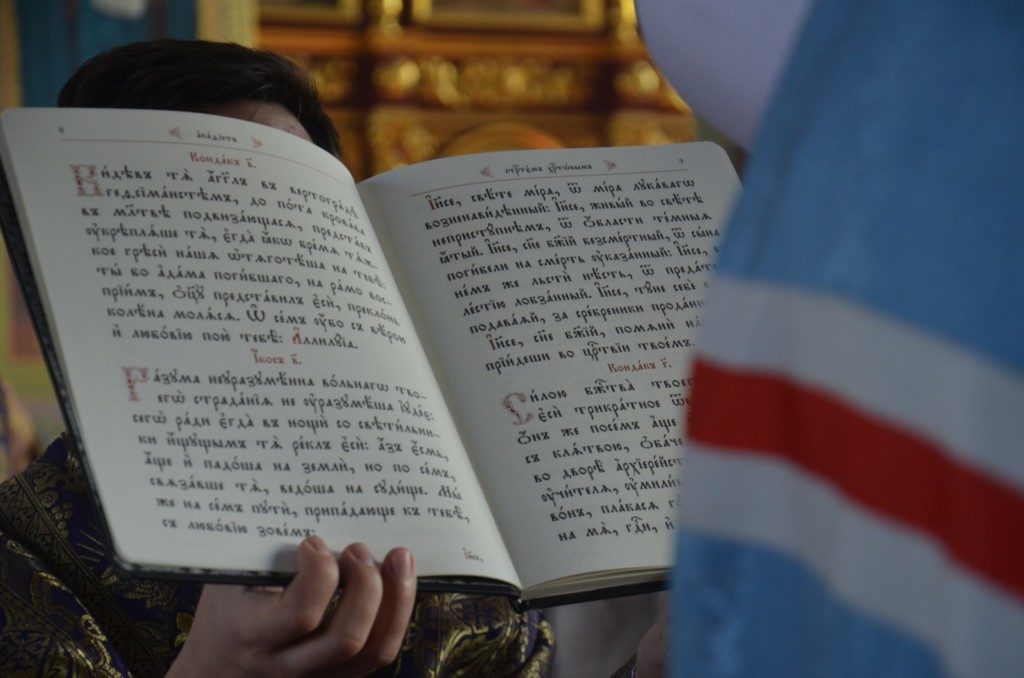 и҃
а҆ка́ѳїстъ
Конда́къ в҃.
Ви́дѣвъ тѧ̀ а҆́гг҃лъ въ вертогра́дѣ
геѳсїма́нстѣмъ, до по́та крова́ва
въ мл҃твѣ подвиза́ющасѧ, предста́въ
ᲂу҆крѣплѧ́ше тѧ̀, є҆гда̀ ꙗ҆́кѡ бре́мѧ тѧ́ж-
кое грѣсѝ на́ша ѡ҆тѧготѣ́ша на тебѣ̀:
ты́ бо а҆да́ма поги́бшаго, на ра́мо вос-
прїи́мъ, ѻ҆ц҃ꙋ̀ предста́вилъ є҆сѝ, прекло́нь
кѡлѣ́на молѧ́сѧ. Ѡ҆ се́мъ ᲂу҆́бо съ вѣ́рою
и҆ любо́вїю пою̀ тебѣ̀: А҆ллилꙋ́їа.
І҆́косъ в҃.
Ра́зꙋма неꙋразꙋмѣ́нна во́льнагѡ твое-
егѡ̀ страда́нїѧ не ᲂу҆разꙋмѣ́ша і҆ꙋде́є:
сегѡ̀ ра́ди є҆гда̀ въ нощѝ со свѣти́льни-
ки и҆́щꙋщымъ тѧ̀ ре́клъ є҆сѝ: а҆́зъ є҆́смь,
а҆́ще и҆ падо́ша на землѝ, но по се́мъ,
свѧза́вше тѧ̀, ведо́ша на сꙋди́ще. Мы́
же на се́мъ пꙋтѝ, припа́дающе къ тебѣ̀,
съ любо́вїю зове́мъ:
І҆и҃се,
ѳ҃
стрⷭ҇те́мъ хрⷭ҇тѡ́вымъ
І҆и҃се, свѣ́те мі́ра, ѿ мі́ра лꙋка́вагѡ
возненави́дѣнный: І҆и҃се, живы́й во свѣ́тѣ
непристꙋ́пнѣмъ, ѿ ѻ҆́бласти те́мныѧ
ꙗ҆́тый. І҆и҃се, сн҃е бж҃їй безсме́ртный, ѿ сы́на
поги́бели на сме́рть ᲂу҆ка́занный: І҆и҃се, въ
не́мъ же льстѝ нѣ́сть, ѿ преда́т
ле́стїю лобза́нный. І҆и҃се, тꙋ́не себѐ в
подава́ѧй, за сре́бреники прода́нн
І҆и҃се, сн҃е бж҃їй, помѧнѝ на
прїи́деши во црⷭ҇твїи твое́мъ.
Конда́къ г҃.
Си́лою бж҃тва̀ твоег
є҆сѝ трикра́тное ѿв
ѻ҆́нъ же посе́мъ а҆́ще
съ клѧ́твою, ѻ҆ба́че
во дворѣ̀ а҆рхїере́йст
ᲂу҆чи́телѧ, ᲂу҆мили́в
во́нъ, пла́касѧ го
на мѧ̀, гдⷭ҇и, и҆